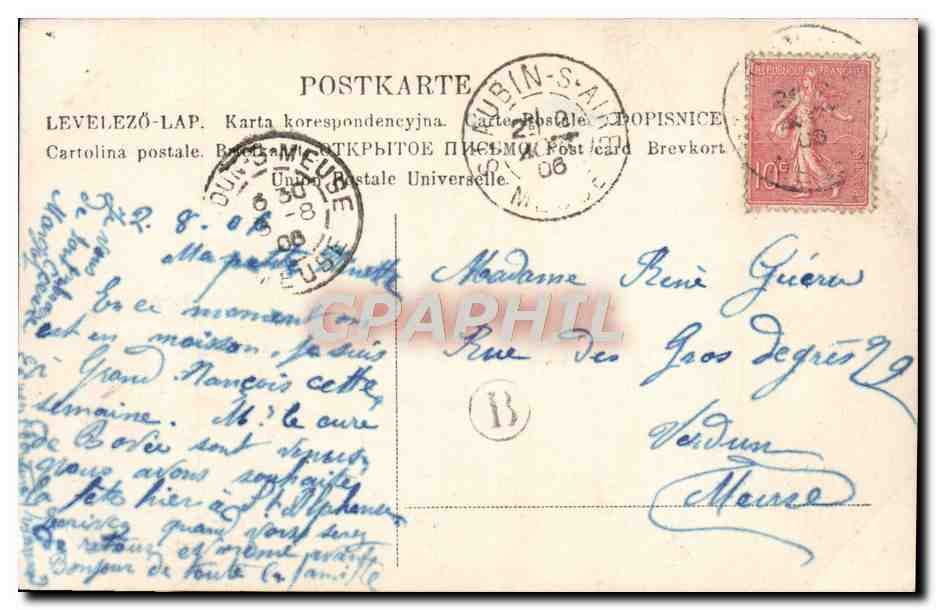 POSTKARTE
LEVELEZŐ-LAP. Karta korespondencyjna. Carte Postale. DOPISNICE
Cartolina postale. Briefkaart ОТКРЫТОЕ ПИСЬМО Post card Brevkort
Union Postale Universelle.
REPUBLIQUE FRANÇAISE
10c
S AUBIN-S-AIRE
2E
06
MEUSE
DUN-S-MEUSE
6 30
-8
06
MEUSE
06
CPAPHIL
B
2.8.06
Ma petite
En ce moment on
est en moisson. Je suis
à Grand François cette
semaine. Mr le curé
de Bovée sont venus,
nous avons souhaité
la fête hier à St Alphonse
Ecrivez quand vous serez
de retour et même avant
Bonjour de toute la famille
Madame René Guérin
Rue des Gros degrés 29
Verdun
Meuse